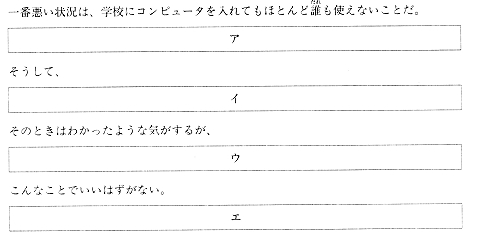 一番悪い状況は、学校にコンピュータを入れてもほとんど誰も使えないことだ。
ア
そうして、
イ
そのときはわかったような気がするが、
ウ
こんなことでいいはずがない。
エ